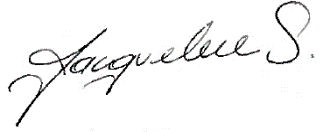 Jacqueline S.